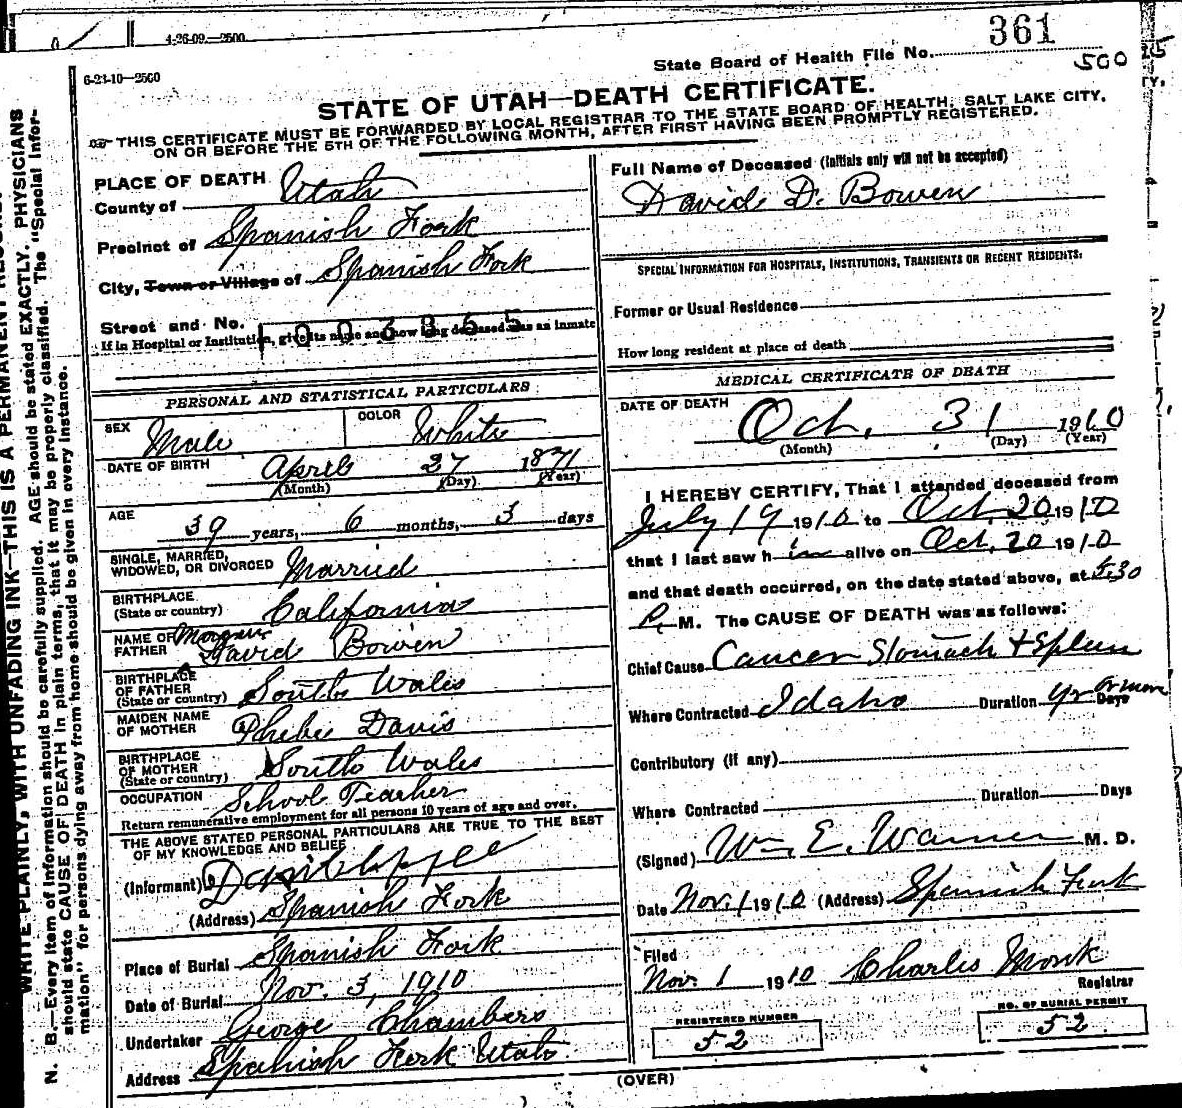 4-26-09.—2500
6-23-10—2500
State Board of Health File No. 361
500
STATE OF UTAH—DEATH CERTIFICATE.
THIS CERTIFICATE MUST BE FORWARDED BY LOCAL REGISTRAR TO THE STATE BOARD OF HEALTH, SALT LAKE CITY,
ON OR BEFORE THE 5TH OF THE FOLLOWING MONTH, AFTER FIRST HAVING BEEN PROMPTLY REGISTERED.
PLACE OF DEATH
County of Utah
Precinct of Spanish Fork
City, Town or Village of Spanish Fork
Street and No.
1003365
If in Hospital or Institution, give its name and how long deceased was an inmate
PERSONAL AND STATISTICAL PARTICULARS
SEX Male
COLOR White
DATE OF BIRTH April 27 1871
(Month) (Day) (Year)
AGE 39 years, 6 months, 3 days
SINGLE, MARRIED,
WIDOWED, OR DIVORCED Married
BIRTHPLACE
(State or country) California
NAME OF
FATHER Morgan
David Bowen
BIRTHPLACE
OF FATHER
(State or country) South Wales
MAIDEN NAME
OF MOTHER Phebe Davis
BIRTHPLACE
OF MOTHER
(State or country) South Wales
OCCUPATION School Teacher
Return remunerative employment for all persons 10 years of age and over.
THE ABOVE STATED PERSONAL PARTICULARS ARE TRUE TO THE BEST
OF MY KNOWLEDGE AND BELIEF
(Informant)
(Address) Spanish Fork
Place of Burial Spanish Fork
Date of Burial Nov. 3, 1910
Undertaker George Chambers
Address Spanish Fork Utah
Full Name of Deceased (Initials only will not be accepted)
David D. Bowen
SPECIAL INFORMATION FOR HOSPITALS, INSTITUTIONS, TRANSIENTS OR RECENT RESIDENTS:
Former or Usual Residence
How long resident at place of death
MEDICAL CERTIFICATE OF DEATH
DATE OF DEATH Oct. 31 1910
(Month) (Day) (Year)
I HEREBY CERTIFY, That I attended deceased from
July 19 1910 to Oct. 20 1910
that I last saw h im alive on Oct. 20 1910
and that death occurred, on the date stated above, at 5:30
P. M. The CAUSE OF DEATH was as follows:
Chief Cause Cancer Stomach + Spleen
Where Contracted Idaho Duration Yr or more Days
Contributory (if any)
Where Contracted Duration Days
(Signed) Wm. E. Warner M. D.
Date Nov. 1 1910 (Address) Spanish Fork
Filed
Nov. 1 1910 Charles Monk
Registrar
REGISTERED NUMBER
52
NO. OF BURIAL PERMIT
52
(OVER)
WRITE PLAINLY, WITH UNFADING INK—THIS IS A PERMANENT
N. B.—Every item of information should be carefully supplied. AGE should be stated EXACTLY. PHYSICIANS
should state CAUSE OF DEATH in plain terms, that it may be properly classified. The "Special Infor-
mation" for persons dying away from home should be given in every instance.